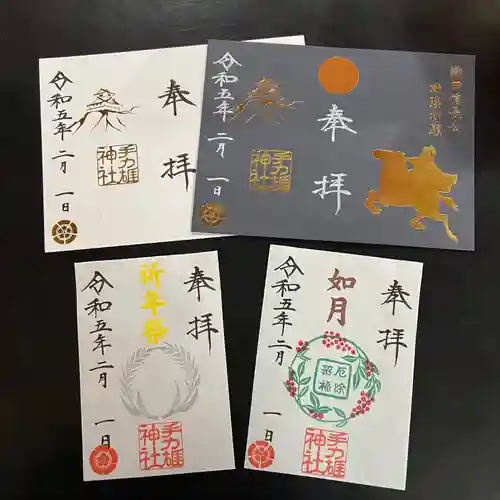 奉拝
手力雄神社
令和五年二月一日
奉拝
手力雄神社
令和五年二月一日
奉拝
祈年祭
手力雄神社
令和五年二月一日
奉拝
如月
厄除招福
手力雄神社
令和五年二月一日